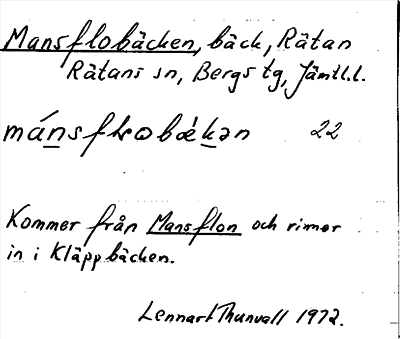 Mansflobäcken, bäck, Rätan
Rätans sn, Bergs tg, Jämtl.l.
mánsfɫωbǽkən 22
Kommer från Mansflon och rinner
in i Kläppbäcken.
Lennart Thunvall 1972.